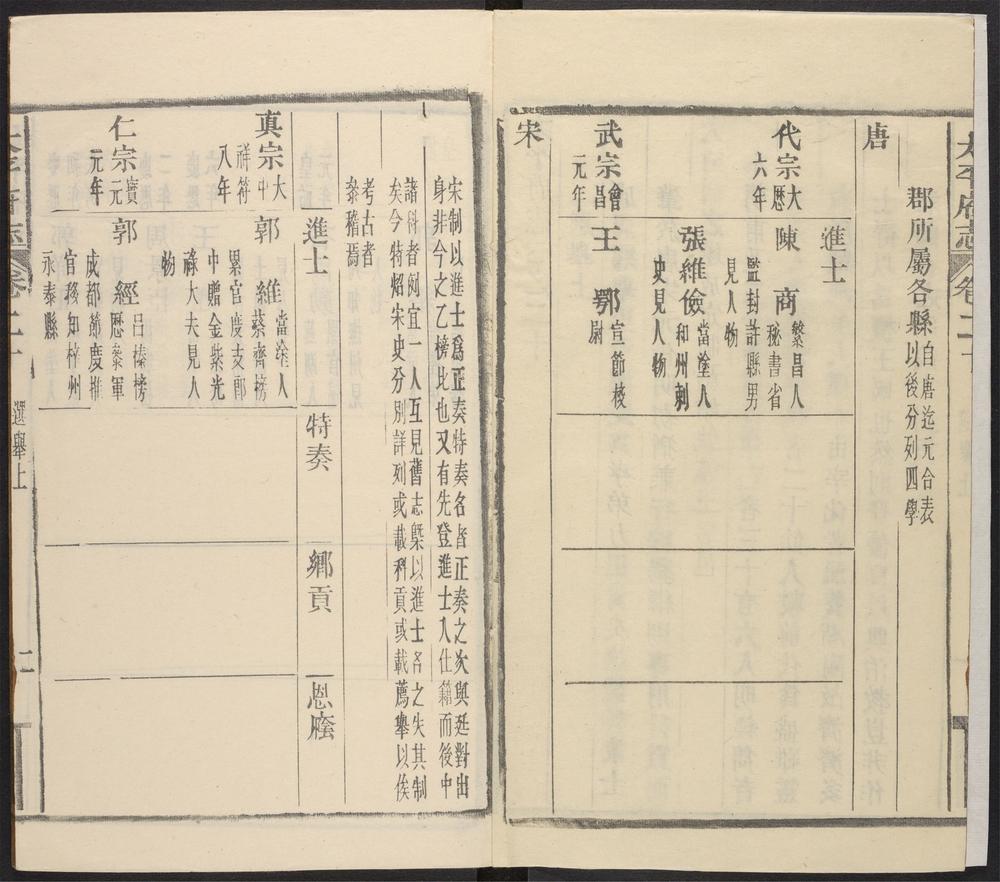 太平府志 卷二十
郡所屬各縣自唐迄元合表
以後分列四學
唐
進士
代宗大曆
六年
陳商繁昌人
秘書省
監封許縣男
見人物
張維儉當塗人
和州刺
史見人物
武宗會昌
元年
王鄂宣節校
尉
宋
宋制以進士爲正奏特奏名者正奏之次與廷對出
身非今之乙榜比也又有先登進士入仕籍而後中
諸科者例宜一人互見舊志槩以進士名之失其制
矣今特炤宋史分別詳列或載科貢或載薦舉以俟
考古者
叅稽焉
進士
特奏
鄉貢
恩廕
真宗大中
祥符
八年
郭維當塗人
蔡齊榜
累官度支郎
中贈金紫光
祿大夫見人
物
仁宗寶元
元年
郭經呂榛榜
歷叅軍
成都節度推
官移知梓州
永泰縣
太平府志 卷二十
選舉上
二